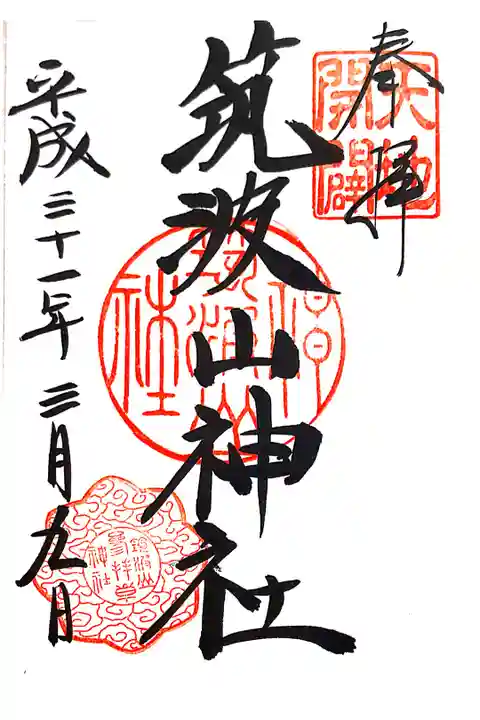 奉拝
天地
開闢
筑波山神社
筑波山
神社
平成三十一年三月九日
筑波山
参拝章
神社